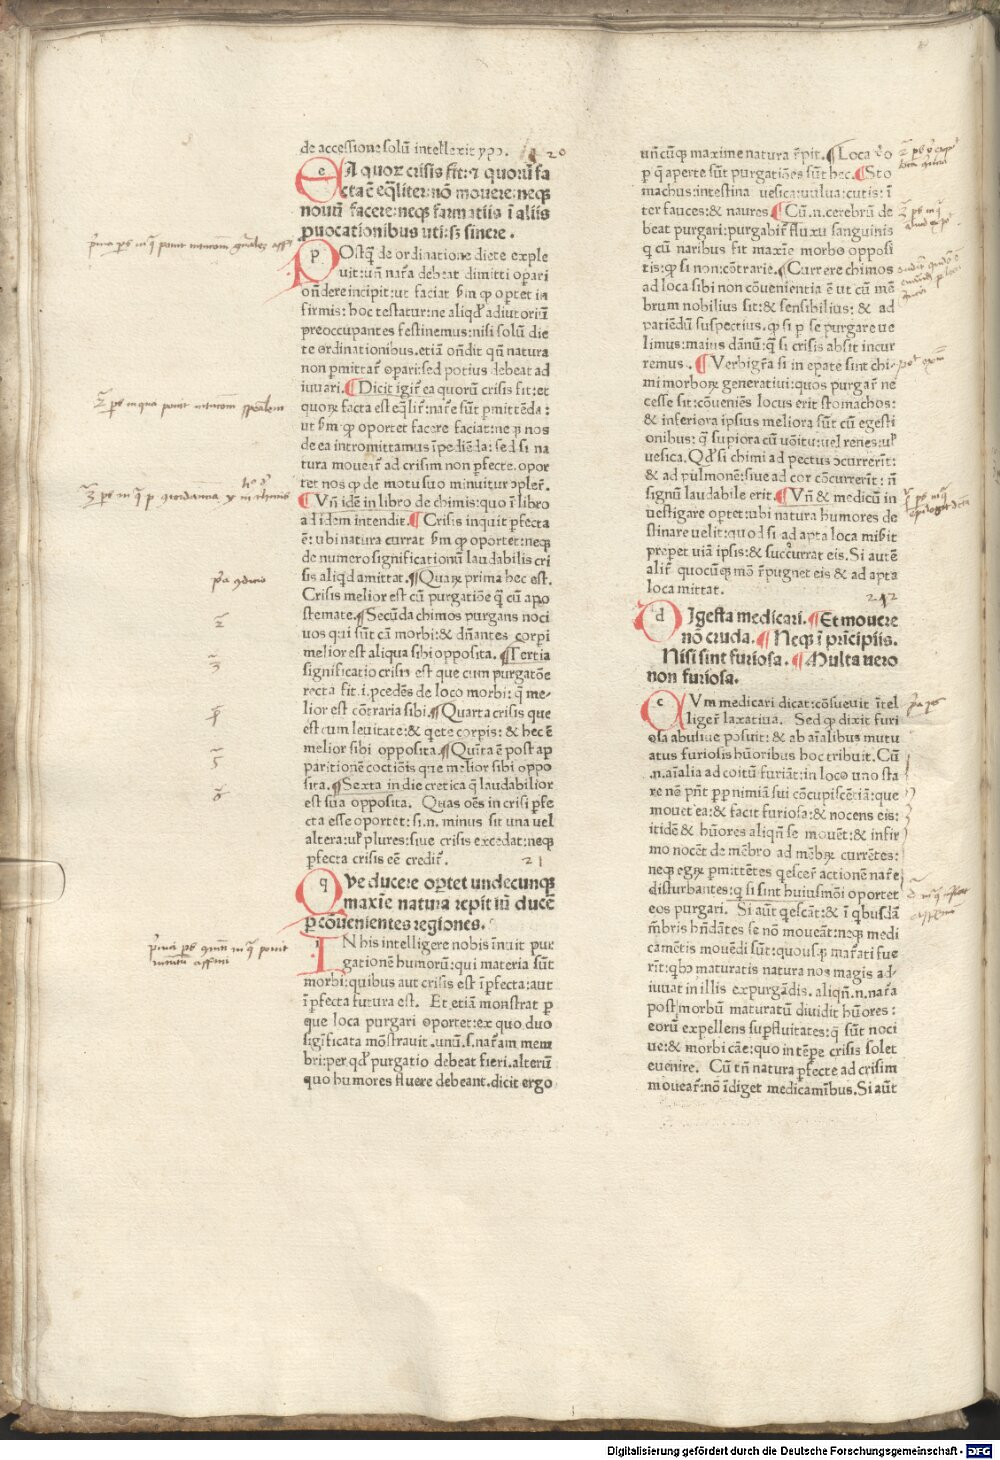 de accessione solũ intellexit ypo. 20
EA quoꝝ crisis fit: ⁊ quoꝝ fa
cta ẽ eq̃liter: nõ mouere: neqꝫ
nouũ facere: neqꝫ farmatiis ĩ aliis
ꝓuocationibus uti: sꝫ sinere.
POstq̃ de ordinatione diete exple
uit: uñ nar̃a debeat dimitti oꝑari
oñdere incipit: ut faciat ẜm ꝙ oꝑtet in
firmis: hoc testatur: ne aliqd̃ adiutoriũ
preoccupantes festinemus: nisi solũ die
te ordinationibus. etiã oñdit qñ natura
non ꝑmittat̃ oꝑari: sed potius debeat ad
iuuari. ¶Dicit igit̃ ea quorũ crisis fit: et
quoꝝ facta est eq̃lit̃: nar̃e sũt ꝑmittẽda:
ut ẜm ꝙ oportet facere faciat: ne ꝓ nos
de ea intromittamus ĩpediẽda: sed si na
tura moueat̃ ad crisim non ꝑfecte. opor
tet nos ꝙ de motu suo minuitur ɔpler̃.
¶Vñ idẽ in libro de chimis: quo ĩ libro
ad idem intendit. ¶Crisis inquit ꝑfecta
ẽ: ubi natura currat ẜm ꝙ oportet: neqꝫ
de numero significationũ laudabilis cri
sis aliqd̃ amittat. ¶Quaꝝ prima hec est.
Crisis melior est cũ purgatiõe q̃ cũ apo
stemate. ¶Secũda chimos purgans noci
uos qui sũt cã morbi: & dñantes corpi
melior est aliqua sibi opposita. ¶Tertia
significatio crisis est que cum purgatõe
recta fit. i. ꝓcedẽs de loco morbi: q̃ me-
lior est cõtraria sibi. ¶Quarta crisis que
est cum leuitate: & q̃ete corpis: & hec ẽ
melior sibi opposita. ¶Quĩta ẽ post ap
paritionẽ coctiõis que melior sibi oppo
sita. ¶Sexta in die cretica q̃ laudabilior
est sua opposita. Quas oẽs in crisi ꝑfe
cta esse oportet: si. n. minus sit una uel
altera: uł plures: siue crisis excedat: neqꝫ
ꝑfecta crisis eẽ credit̃. 21
QVe ducere oꝑtet undecunqꝫ
maxĩe natura repit iñ ducẽ
ꝑ cõuenientes regiones.
IN his intelligere nobis inuit pur
gationẽ humorũ: qui materia sũt
morbi: quibus aut crisis est ĩꝑfecta: aut
ĩꝑfecta futura est. Et etiã monstrat ꝑ
que loca purgari oportet: ex quo duo
sigĩficata mõstrauit. unũ. s. nar̃am mem
bri: per qd̃ purgatio debeat fieri. alterũ
quo humores fluere debeant. dicit ergo
uñcũqꝫ maxime natura r̃pit. ¶Loca ꝟo
ꝑ q̃ aperte sũt purgatiões sũt hec. ¶Sto
machus: intestina uesica: uulua: cutis: ĩ
ter fauces: & naures. ¶Cũ. n. cerebrũ de
beat purgari: purgabit̃ fluxu sanguinis
q cũ naribus fit maxĩe morbo opposi
tis: ꝙ si non: cõtrarie. ¶Currere chimos
ad loca sibi non cõuenientia ẽ ut cũ mẽ
brum nobilius sit: & sensibilius: & ad
patiẽdũ suspectius. ꝙ si ꝑ se purgare ue
limus: maius dãnũ: q̃ si crisis absit incur
remus. ¶Verbigr̃a si in epate sint chi-
mi morboꝝ generatiui: quos purgar̃ ne
cesse sit: cõueniẽs locus erit stomachos:
& inferiora ipsius meliora sũt cũ egesti
onibus: q̃ supiora cũ uõitu: uel renes: uł
uesica. Qd̃ si chimi ad pectus ɔcurrerĩt:
& ad pulmonẽ: siue ad cor cõcurrerĩt: ñ
signũ laudabile erit. ¶Vñ & medicũ in
uestigare oꝑtet: ubi natura humores de
stinare uelit: quod si ad apta loca misit
preꝑet uiã ipsis: & succurrat eis. Si autẽ
alit̃ quocũqꝫ mõ r̃pugnet eis & ad apta
loca mittat. 22
DIgesta medicari. ¶Et mouere
nõ cruda. ¶Neqꝫ ĩ prĩcipiis.
Nisi sint furiosa. ¶Multa uero
non furiosa.
CVm medicari dicat: cõsueuit ĩtel
liger̃ laxatiua. Sed ꝙ dixit furi
osa abusiue posuit: & ab aĩalibus mutu
atus furiosis hũoribus hoc tribuit. Cũ
.n. aĩalia ad coitũ furiãt: in loco uno sta
re nẽ pñt ꝑꝑ nimiã sui cõcupiscẽtiã: que
mouet ea: & facit furiosa: & nocens eis:
itidẽ & hũores aliqñ se mouẽt: & infir
mo nocẽt de mẽbro ad mẽbꝝ currẽtes:
neqꝫ egꝝ ꝑmittẽtes q̃escer̃ actionẽ nar̃e
disturbantes: q̃ si sint huiusmõi oportet
eos purgari. Si aũt q̃escãt: & ĩ q̃busdã
m̃bris hñdãtes se nõ moueãt: neqꝫ medi
camẽtis mouẽdi sũt: quousqꝫ mar̃ati fue
rĩt: qb9 maturatis natura nos magis ad-
iuuat in illis expurgãdis. aliqñ. n. nar̃a
post morbũ maturatũ diuidit hũores:
eorũ expellens supfluitates: q̃ sũt noci
ue: & morbi cãe: quo in tẽpe crisis solet
euenire. Cũ tñ natura ꝑfecte ad crisim
moueat̃: nõ ĩdiget medicamĩbus. Si aũt
Digitalisierung gefördert durch die Deutsche Forschungsgemeinschaft - DFG